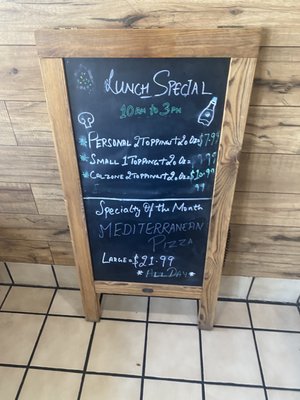 Lunch Special
10 am to 3 pm
Personal 2 Topping + 20oz $7.99
Small 1 Topping + 20oz 9.99
Calzone 2 Topping + 20oz $10.99
99
Specialty Of the Month
MEDITERRANEAN
Pizza
Large = $21.99
*All Day*